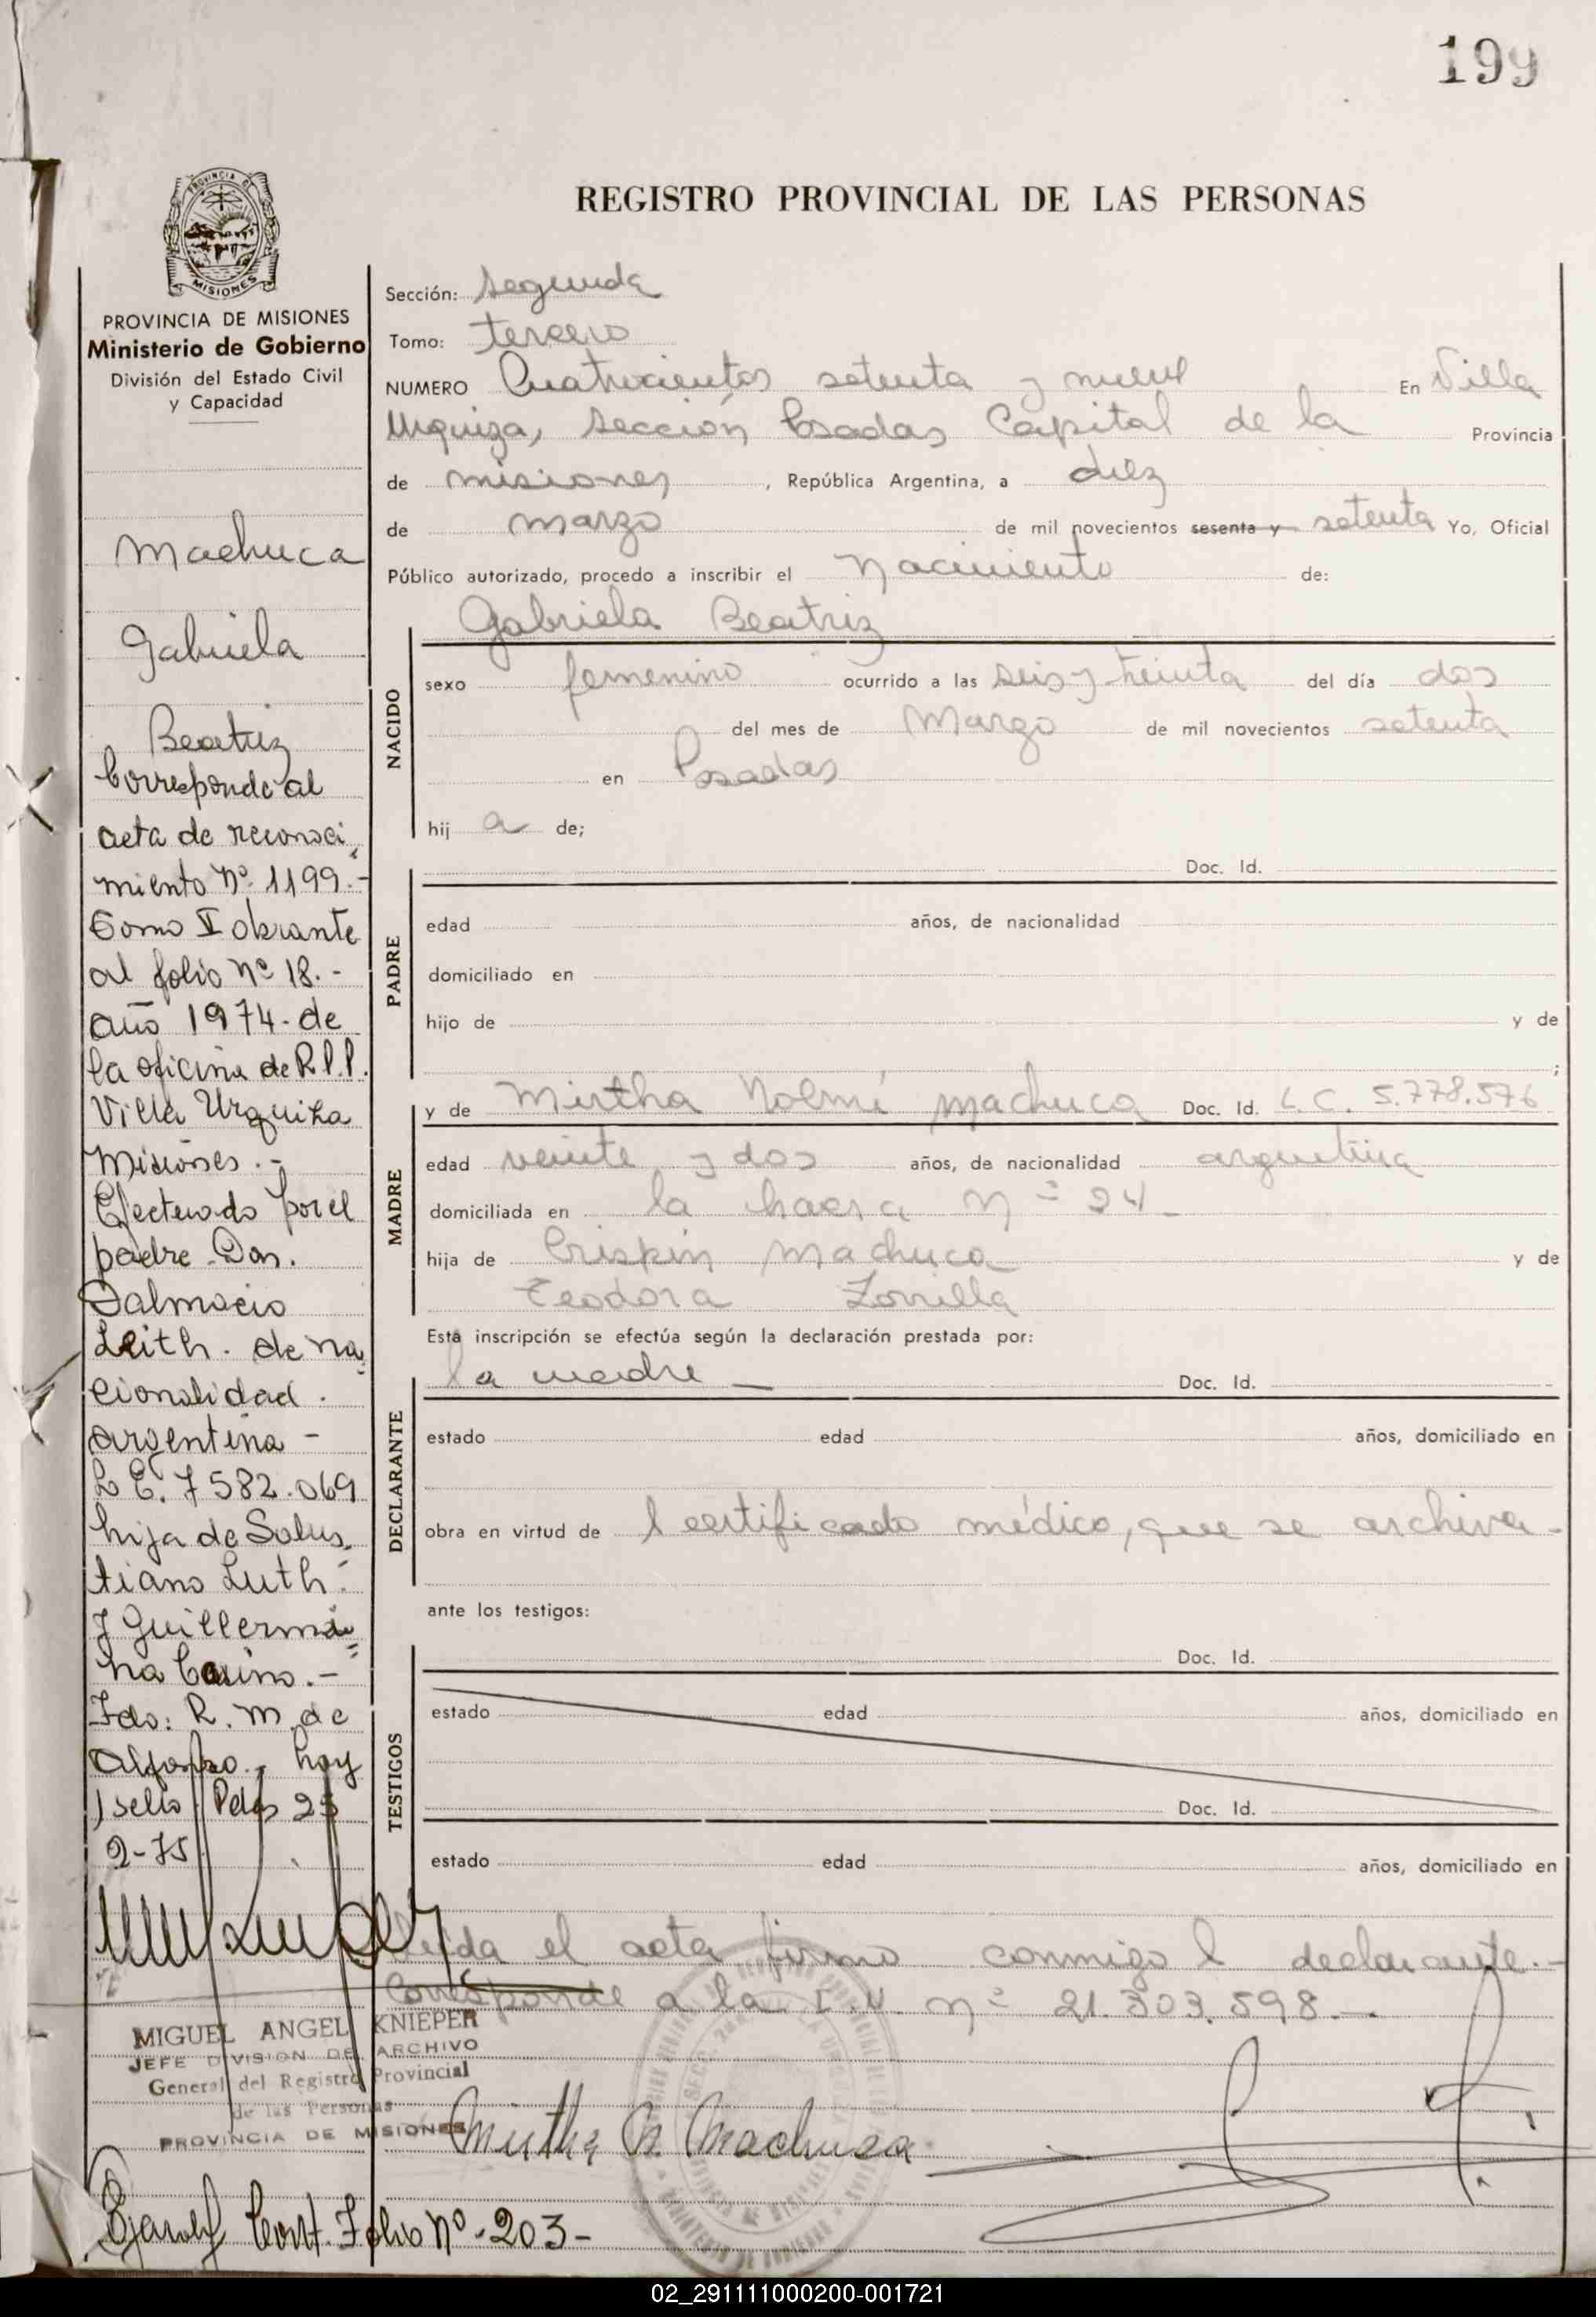 199
REGISTRO PROVINCIAL DE LAS PERSONAS
PROVINCIA DE MISIONES
MISIONES
PROVINCIA DE MISIONES
Ministerio de Gobierno
División del Estado Civil
y Capacidad
Machuca
Gabriela
Beatriz
Corresponde al
acta de reconoci
miento Nº 1199.-
Tomo II obrante
al folio Nº 18.-
año 1974- de
la oficina de R.P.P.
Villa Urquiza
Misiones.-
Efectuado por el
padre Don.
Dalmacio
Leith. de na
cionalidad.
argentina -
L E. 7582.069
hija de Salus
tiano Luth.
y Guillermi
na .-
Fdo: R. M. de
Alfonzo. hay
1 sello Pdas 25
2-75
MIGUEL ANGEL KNIEPER
JEFE DIVISION DE ARCHIVO
General del Registro Provincial
de las Personas
PROVINCIA DE MISIONES
Cont. Folio Nº -203-
Sección: Segunda
Tomo: tercero
NUMERO Cuatrocientos setenta y nueve En Villa
Urquiza, Sección Posadas Capital de la Provincia
de misiones, República Argentina, a diez
de marzo de mil novecientos sesenta y setenta Yo, Oficial
Público autorizado, procedo a inscribir el Nacimiento de:
Gabriela Beatriz
NACIDO
sexo femenino ocurrido a las seis y treinta del día dos
del mes de Marzo de mil novecientos setenta
en Posadas
hij a de;
Doc. Id.
PADRE
edad años, de nacionalidad
domiciliado en
hijo de y de
;
MADRE
y de Mirtha Noemí Machuca Doc. Id. L.C. 5.778.576
edad veinte y dos años, de nacionalidad argentina
domiciliada en la hacra Nº 24-
hija de Crispín Machuca y de
Teodora Zorrilla
Esta inscripción se efectúa según la declaración prestada por:
la madre - Doc. Id.
DECLARANTE
estado edad años, domiciliado en
obra en virtud de l certificado médico, que se archiva-
ante los testigos:
Doc. Id.
TESTIGOS
estado edad años, domiciliado en
Doc. Id.
estado edad años, domiciliado en
Leida el acta firma conmigo l declarante.-
Corresponde a la L.U. nº 21.303.598.-
Mirtha N. Machuca
02_291111000200-001721